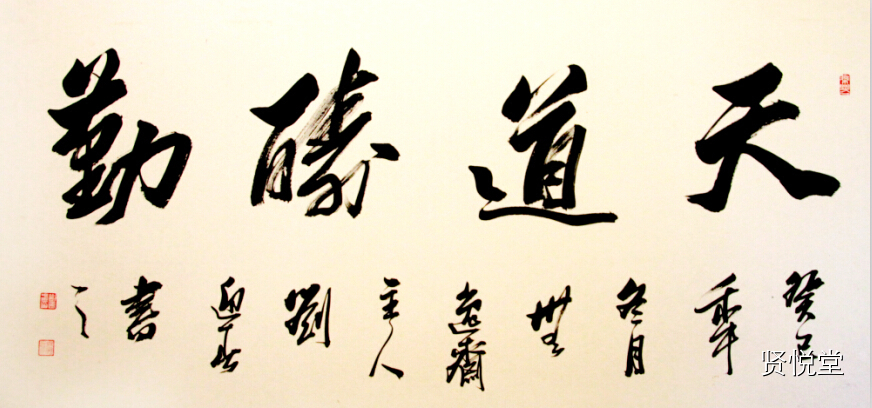 天道酬勤
癸巳年冬月齋主人劉迎春書之
贤悦堂